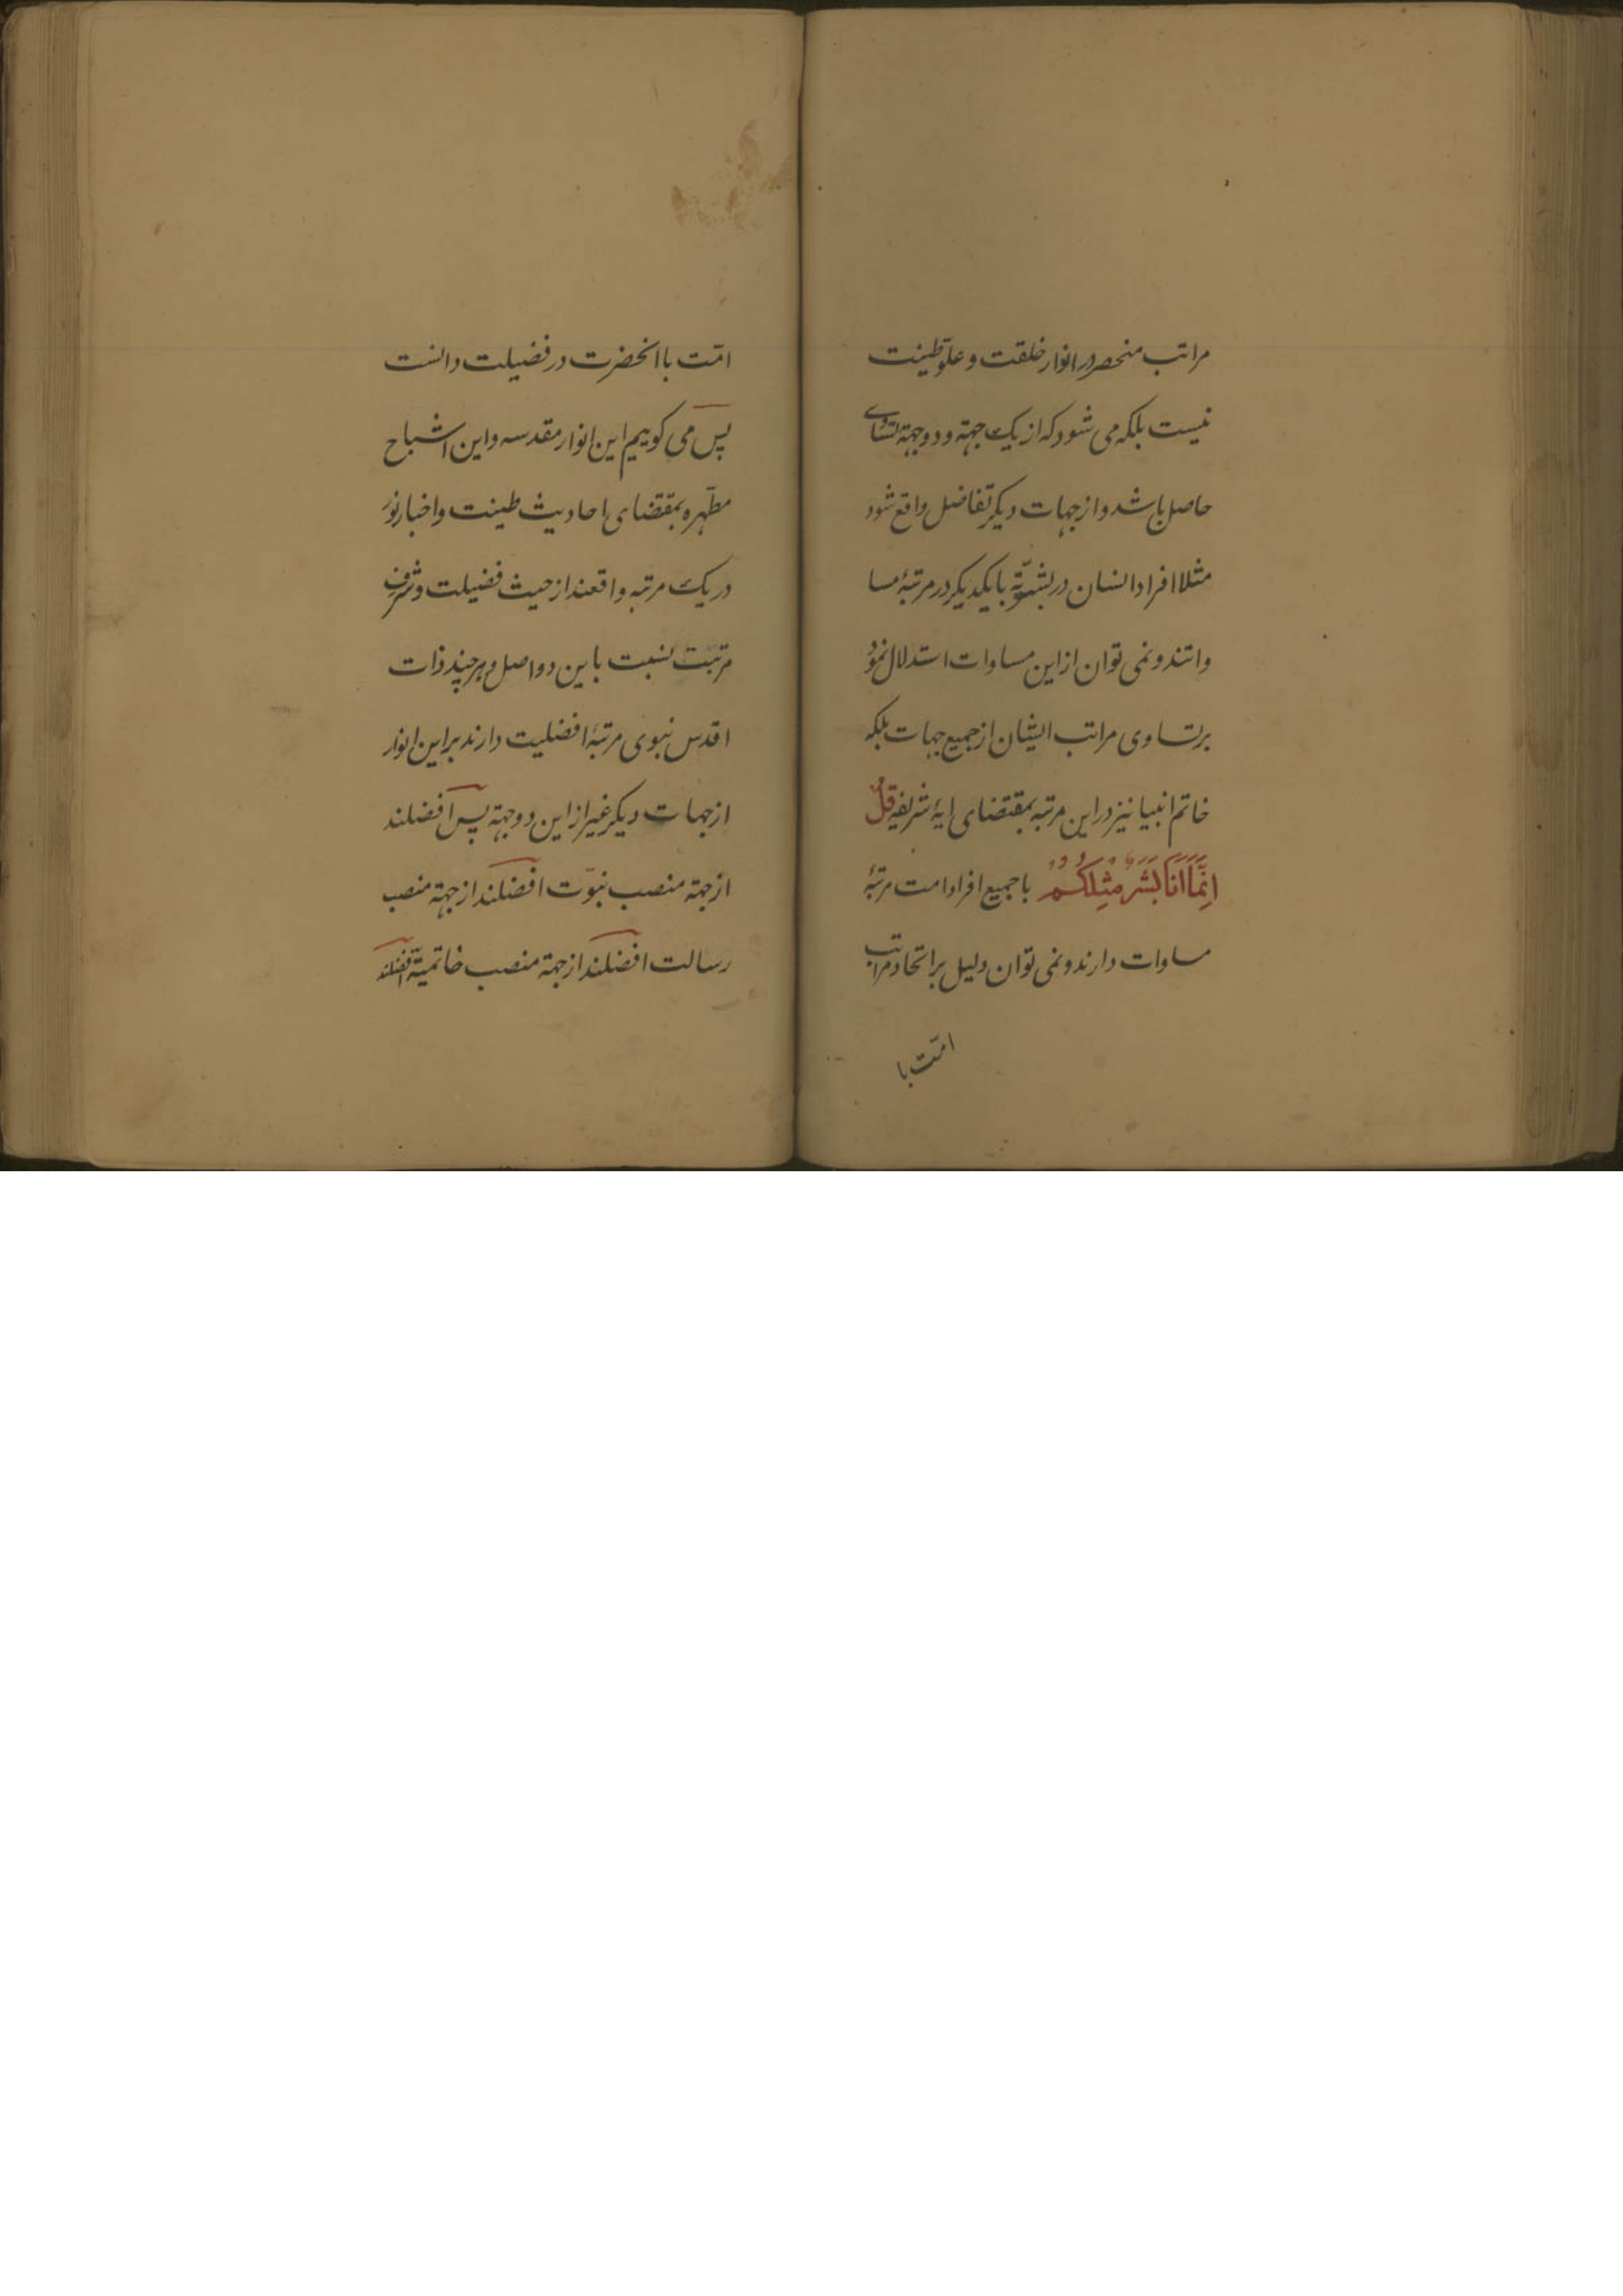 مراتب منحصر در انوار خلقت و علوّ طینت
نیست بلکه می شود که از یک جهة و دو جهة تساوی
حاصل باشد و از جهات دیکر تفاضل واقع شود
مثلا افراد انسان در بشریّة با یکدیکر در مرتبۀ مسا
واتند و نمی توان از این مساوات استدلال نمود
بر تساوی مراتب ایشان از جمیع جهات بلکه
خاتم انبیا نیز در این مرتبه بمقتضای ایۀ شریفه قُلْ
اِنَّمَا اَنَا بَشَرٌ مِثْلُكُمْ با جمیع افراد امت مرتبۀ
مساوات دارند و نمی توان دلیل بر اتحاد مراتب
امّت با
امّت با انحضرت در فضیلت دانست
پس می کوییم این انوار مقدسه و این اشباح
مطهّره بمقتضای احادیث طینت و اخبار نور
در یک مرتبه واقعند از حیث فضیلت و شرف
مرتبت نسبت باین دو اصل و هر چند ذات
اقدس نبوی مرتبۀ افضلیت دارند بر این انوار
از جهات دیکر غیر از این دو جهة پس افضلند
از جهة منصب نبوّت افضلند از جهة منصب
رسالت افضلند از جهة منصب خاتمیّة افضلند